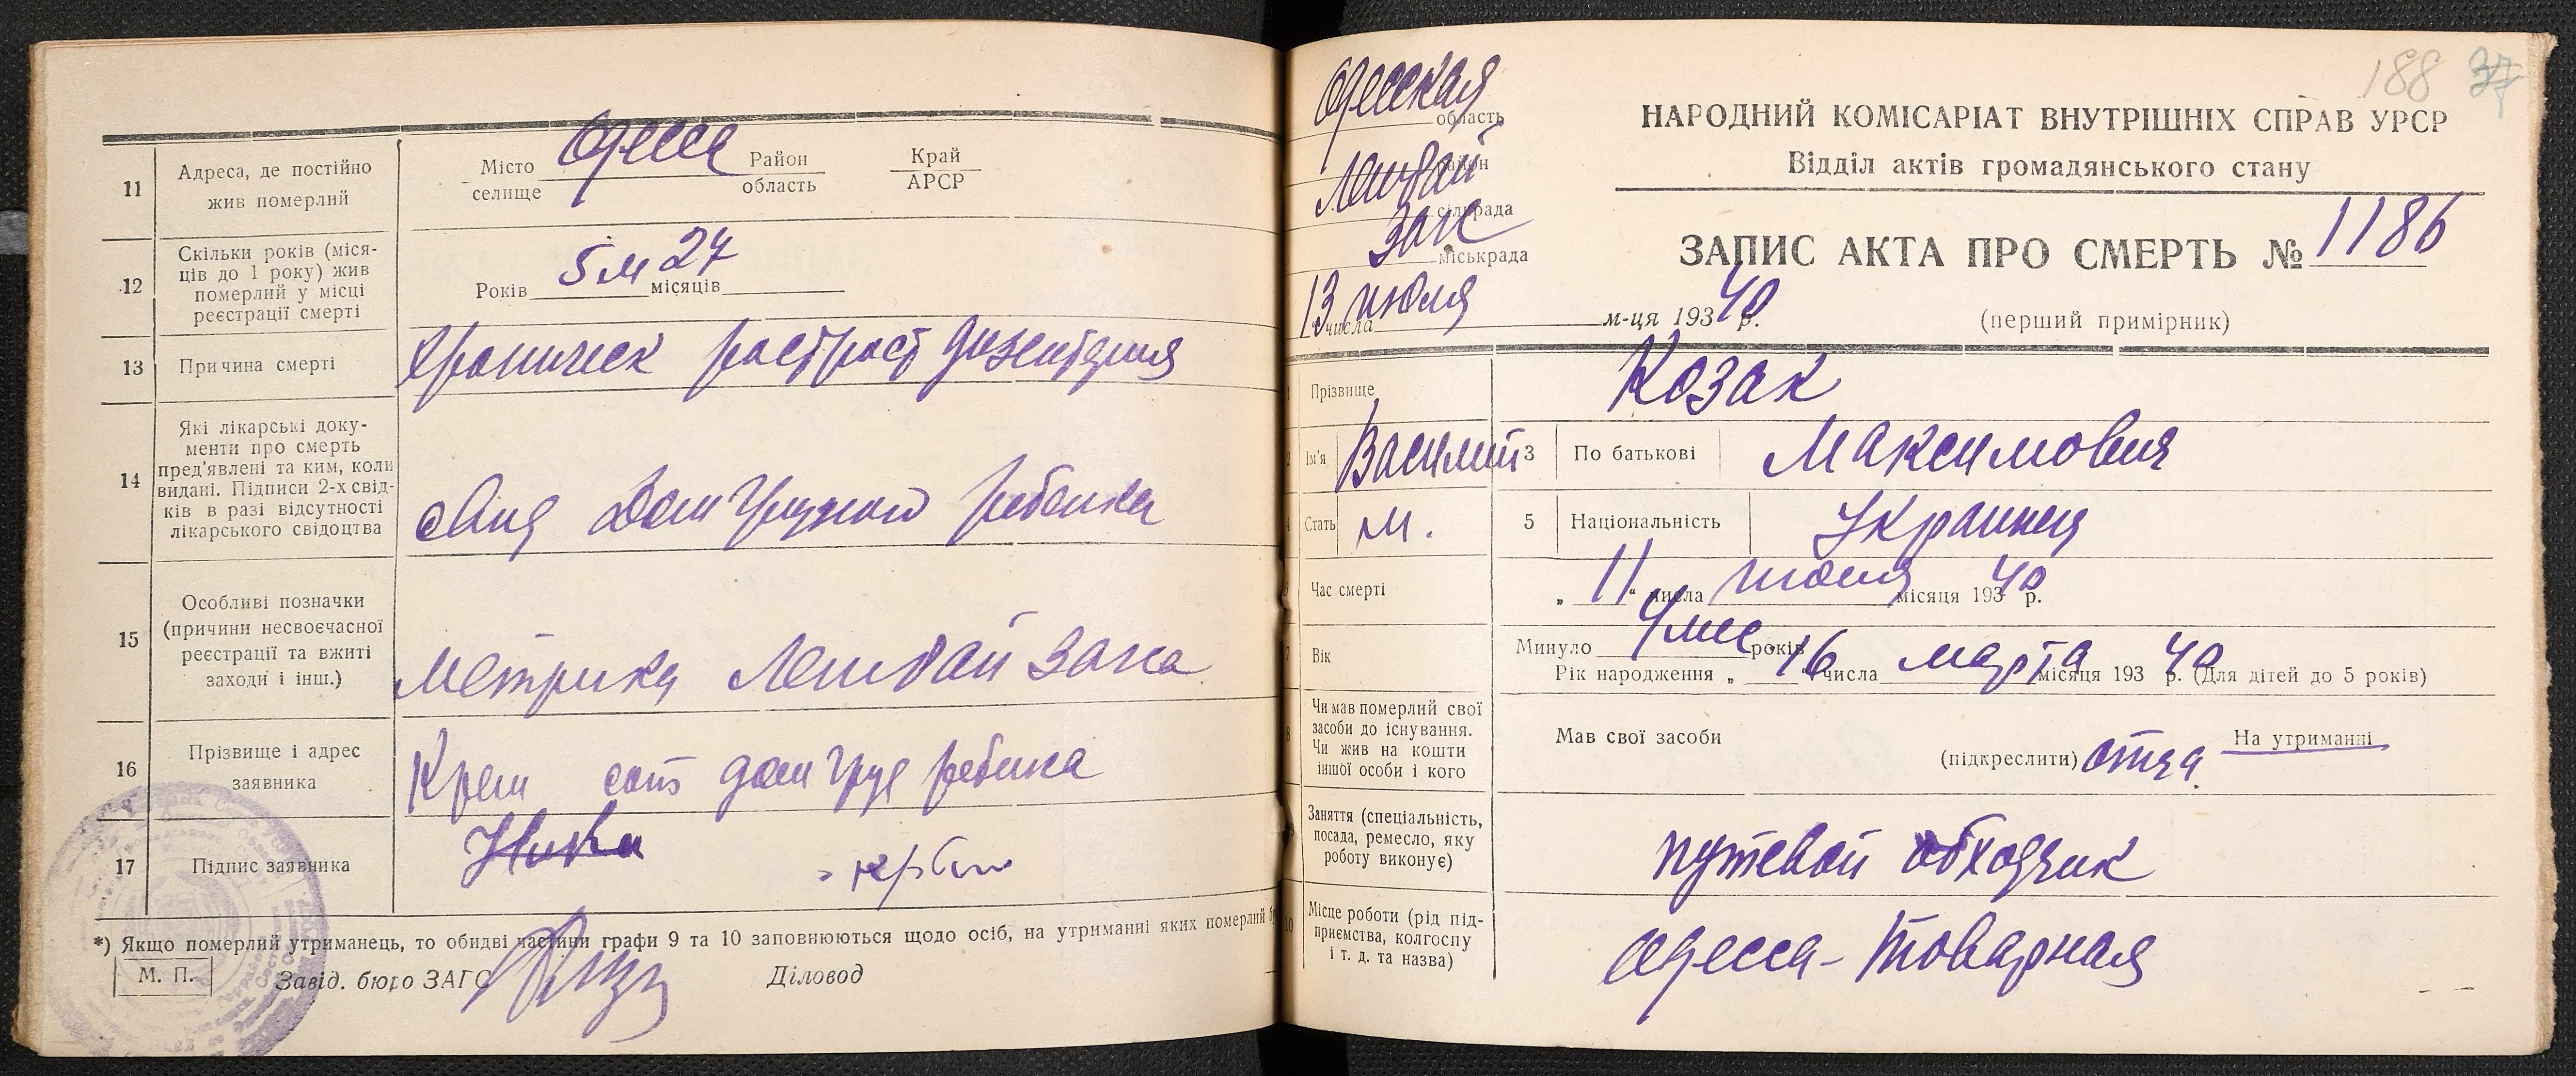 11
Адреса, де постійно
жив померлий
Місто
селище
Одесса
Район
область
Край
АРСР
12
Скільки років (міся-
ців до 1 року) жив
померлий у місці
реєстрації смерті
Років 5 м 27 місяців
13
Причина смерті
Хроническ расстрост дизентерия
14
Які лікарські доку-
менти про смерть
пред'явлені та ким, коли
видані. Підписи 2-х свід-
ків в разі відсутності
лікарського свідоцтва
Дом Грудного ребенка
15
Особливі позначки
(причини несвоєчасної
реєстрації та вжиті
заходи і інш.)
Метрика Ленрай Загса
16
Прізвище і адрес
заявника
дом груд ребенка
17
Підпис заявника
*) Якщо померлий утриманець, то обидві частини графи 9 та 10 заповнюються щодо осіб, на утриманні яких померлий
М. П.
Завід. бюро ЗАГС
Діловод
188 37
Одесская
область
Ленрай
район
сільрада
Загс
міськрада
13 июля
числа м-ця 193 40 р.
НАРОДНИЙ КОМІСАРІАТ ВНУТРІШНІХ СПРАВ УРСР
Відділ актів громадянського стану
ЗАПИС АКТА ПРО СМЕРТЬ № 1186
(перший примірник)
Прізвище
Козак
Ім'я Василий 3 По батькові Максимович
Стать м. 5 Національність Украинец
Час смерті
„ 11 “ числа июля місяця 193 40 р.
Вік
Минуло 4 мес років
Рік народження „ 16 “ числа марта місяця 193 40 р. (Для дітей до 5 років)
Чи мав померлий свої
засоби до існування.
Чи жив на кошти
іншої особи і кого
Мав свої засоби
(підкреслити)
отца
На утриманні
Заняття (спеціальність,
посада, ремесло, яку
роботу виконує)
путевой обходчик
10
Місце роботи (рід під-
приємства, колгоспу
і т. д. та назва)
Одесса-Товарная